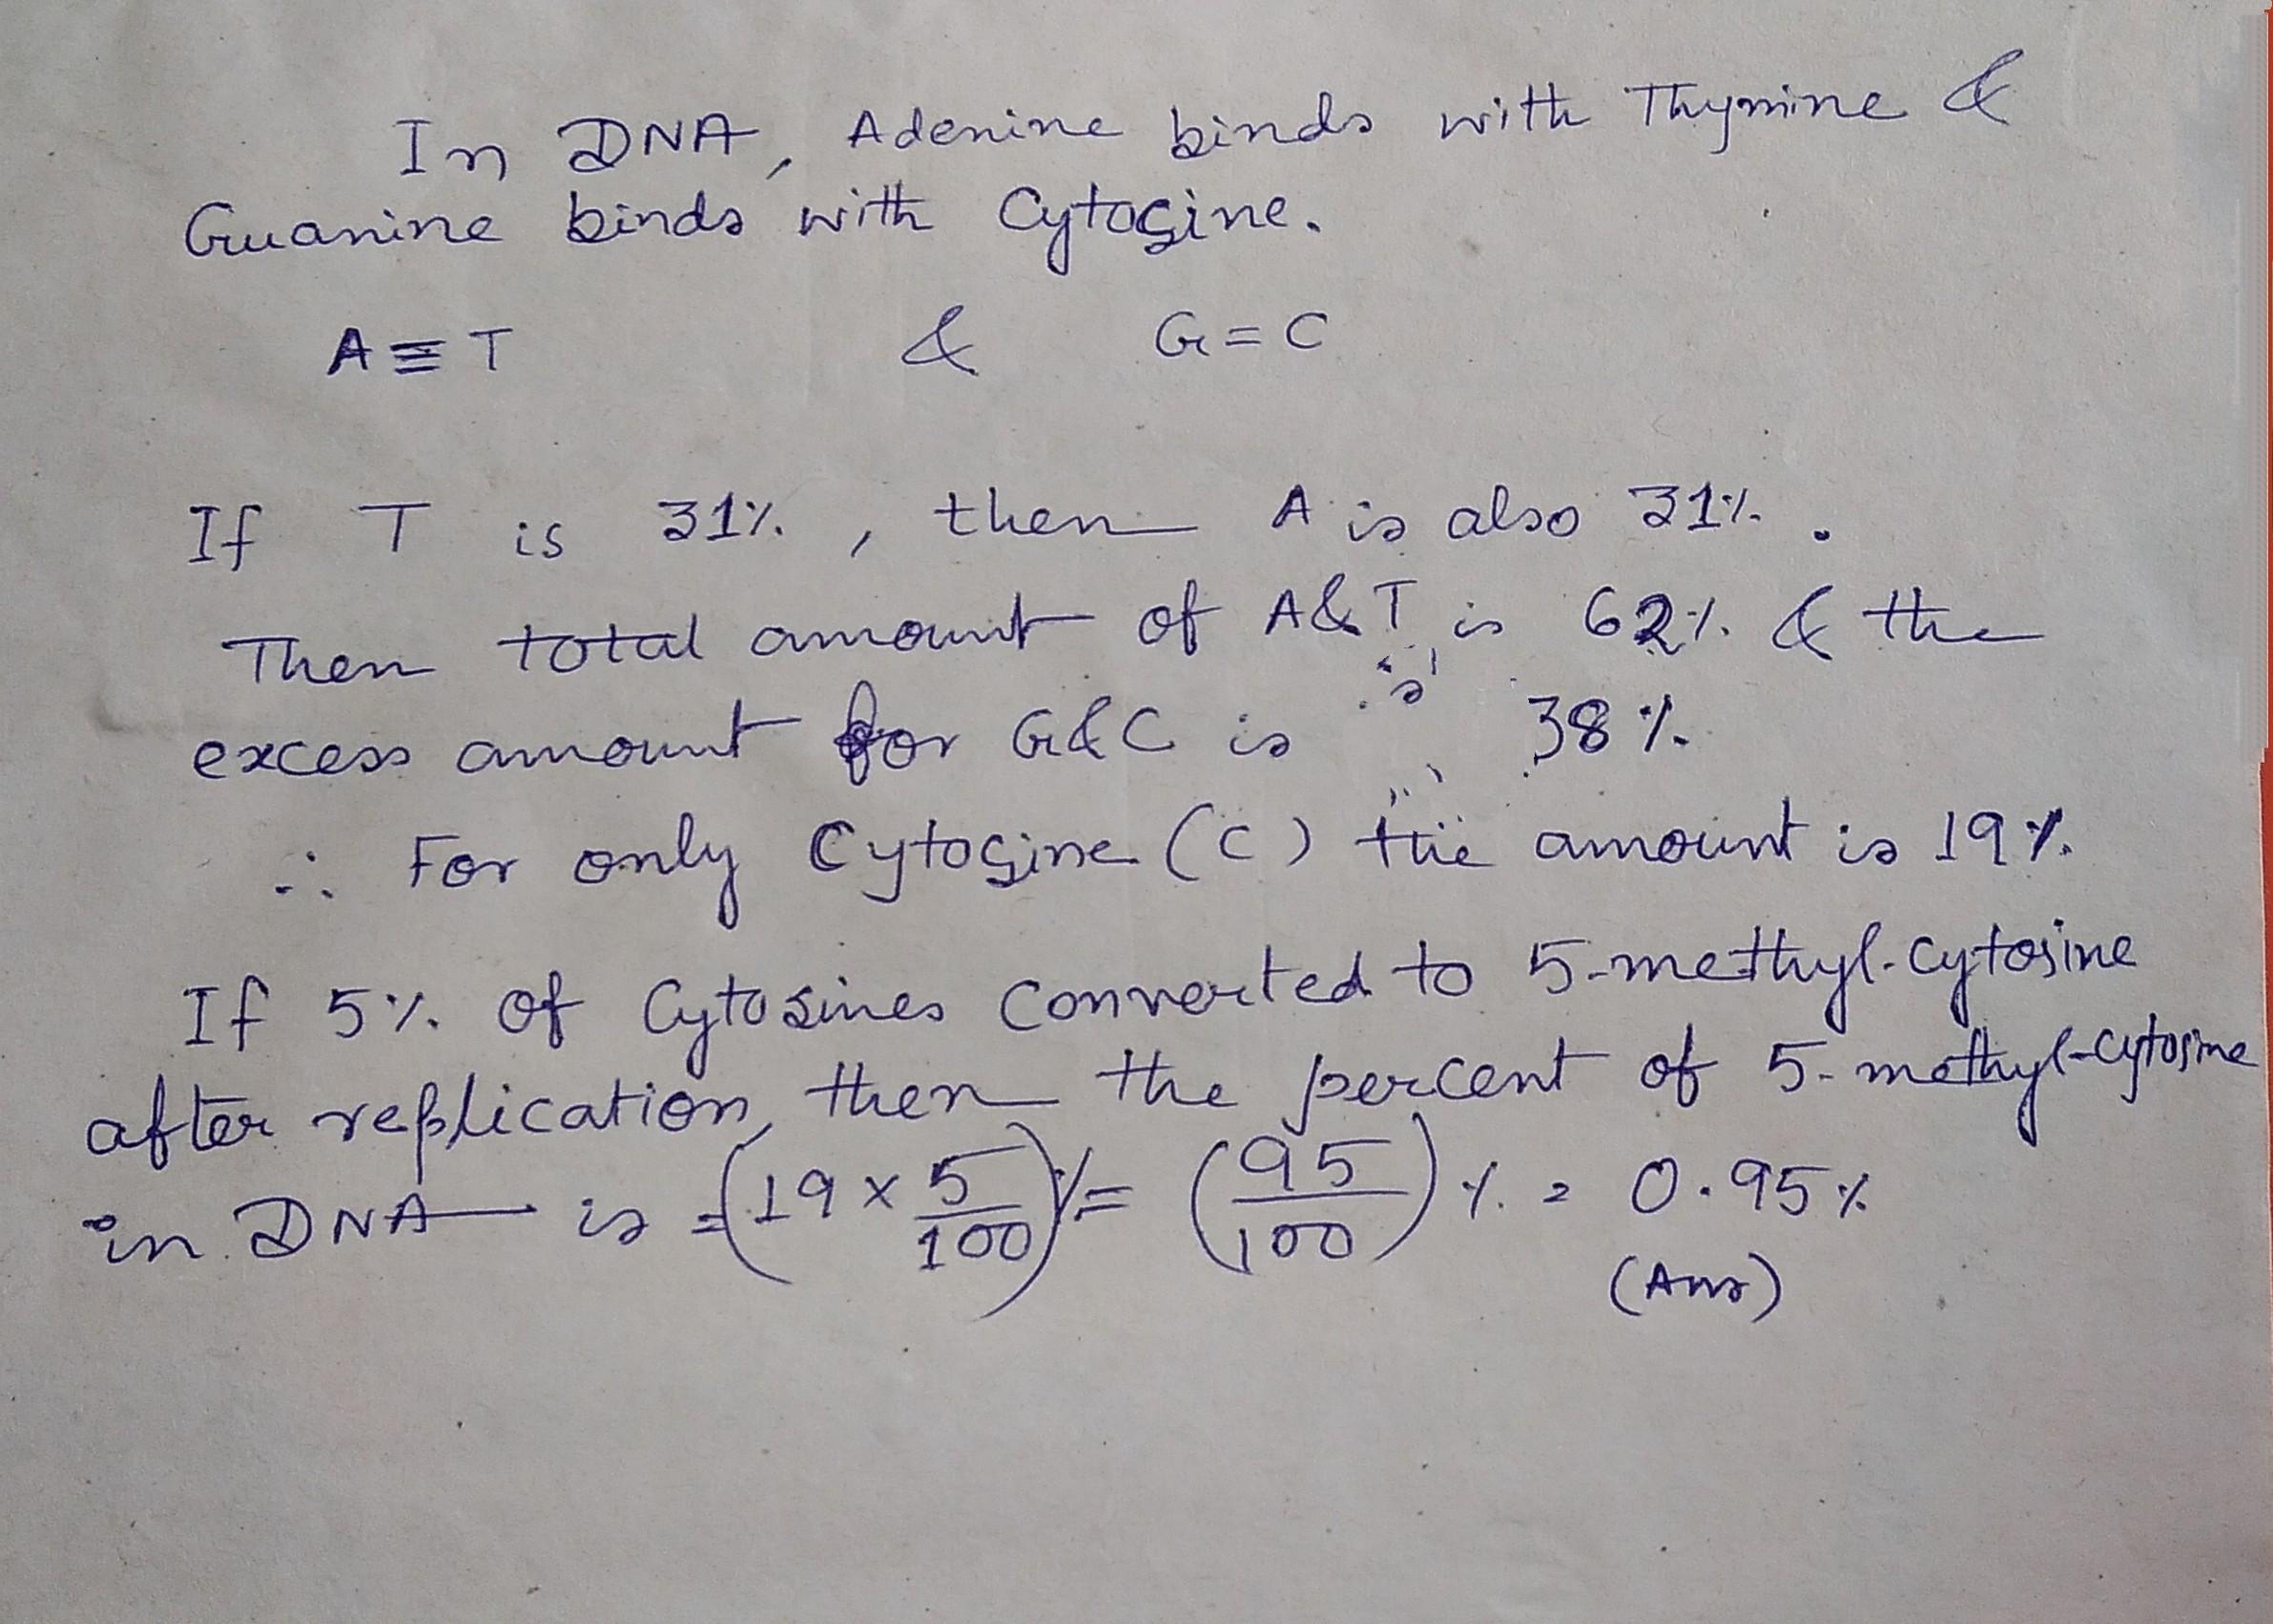 In DNA, Adenine binds with Thymine &
Guanine binds with Cytosine.
A ≡ T & G = C
If T is 31%, then A is also 31%.
Then total amount of A&T is 62% & the
excess amount for G&C is 38%
∴ For only Cytosine (C) the amount is 19%.
If 5% of Cytosines converted to 5-methyl-cytosine
after replication, then the percent of 5-methyl-cytosine
in DNA is = (19 × 5/100)% = (95/100)% = 0.95%
(Ans)